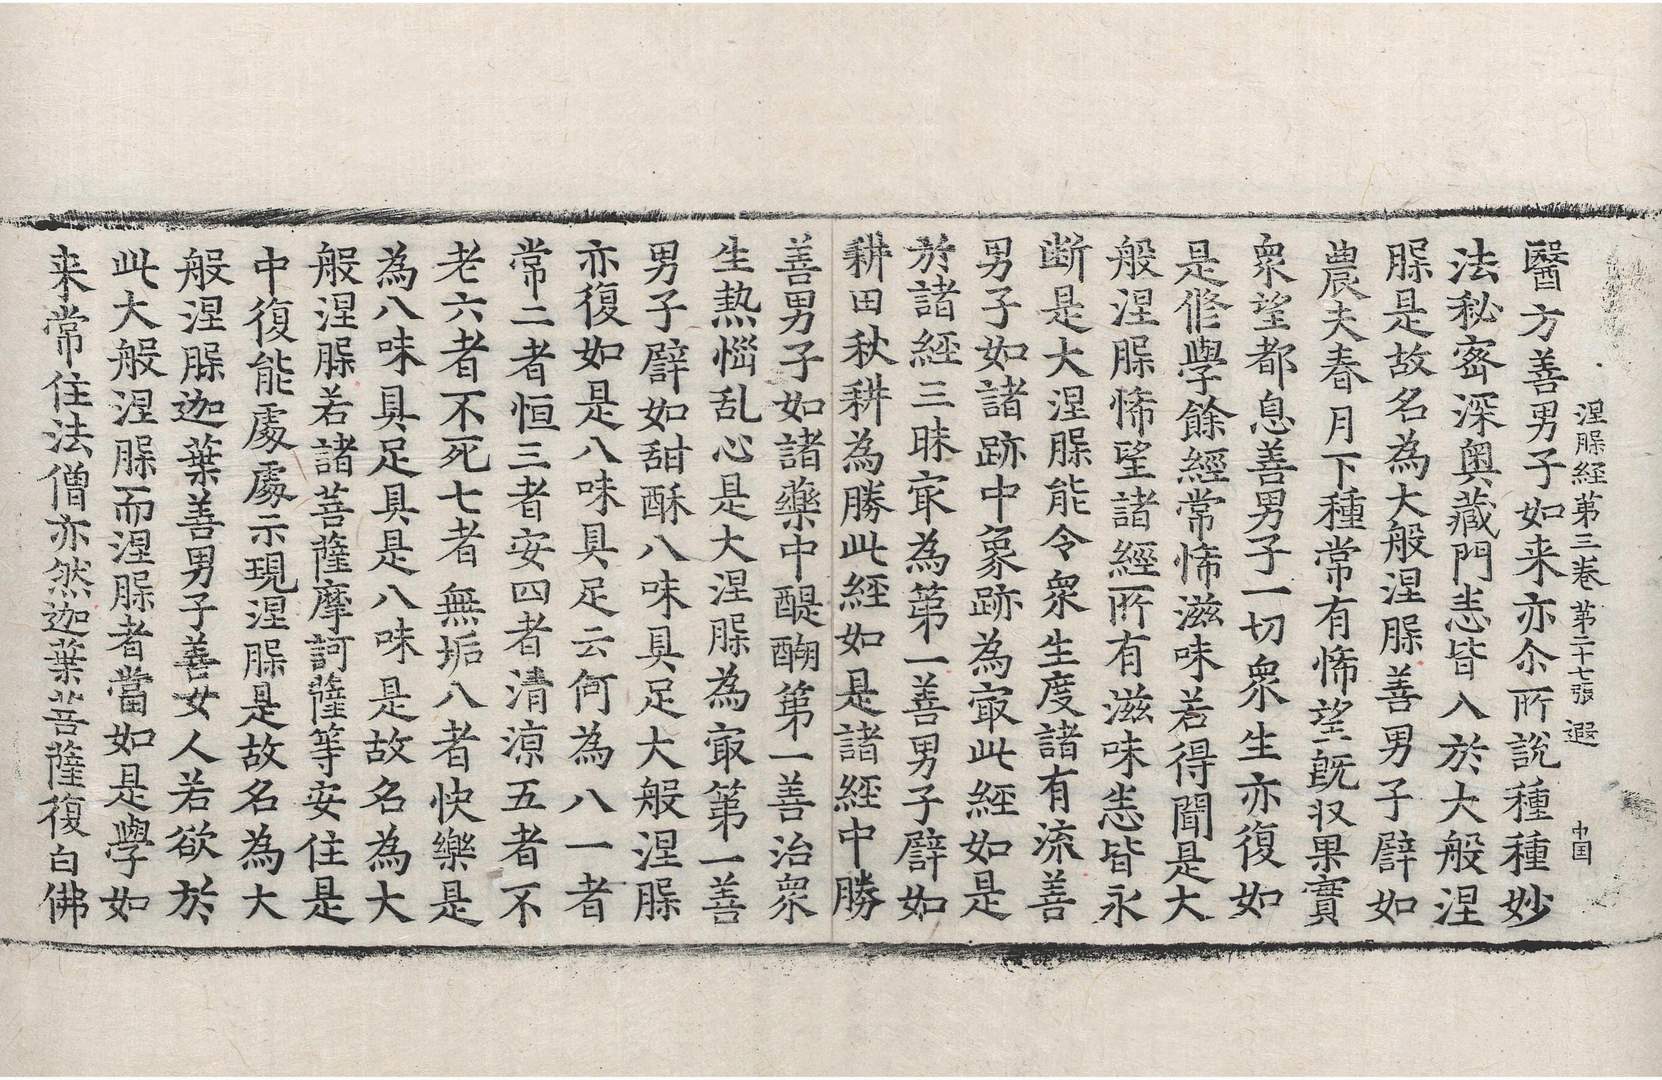 涅槃經第三卷 第二十七張 遐 中国
醫方善男子如来亦尒所說種種妙
法秘密深奥藏門悉皆入於大般涅
槃是故名為大般涅槃善男子譬如
農夫春月下種常有悕望既収果實
衆望都息善男子一切衆生亦復如
是修學餘經常悕滋味若得聞是大
般涅槃悕望諸經所有滋味悉皆永
断是大涅槃能令衆生度諸有流善
男子如諸跡中象跡為㝡此經如是
於諸經三昧㝡為第一善男子譬如
耕田秋耕為勝此經如是諸經中勝
善男子如諸藥中醍醐第一善治衆
生熱惱乱心是大涅槃為㝡第一善
男子譬如甜酥八味具足大般涅槃
亦復如是八味具足云何為八一者
常二者恒三者安四者清涼五者不
老六者不死七者無垢八者快樂是
為八味具足具是八味是故名為大
般涅槃若諸菩薩摩訶薩等安住是
中復能處處示現涅槃是故名為大
般涅槃迦葉善男子善女人若欲於
此大般涅槃而涅槃者當如是學如
来常住法僧亦然迦葉菩薩復白佛